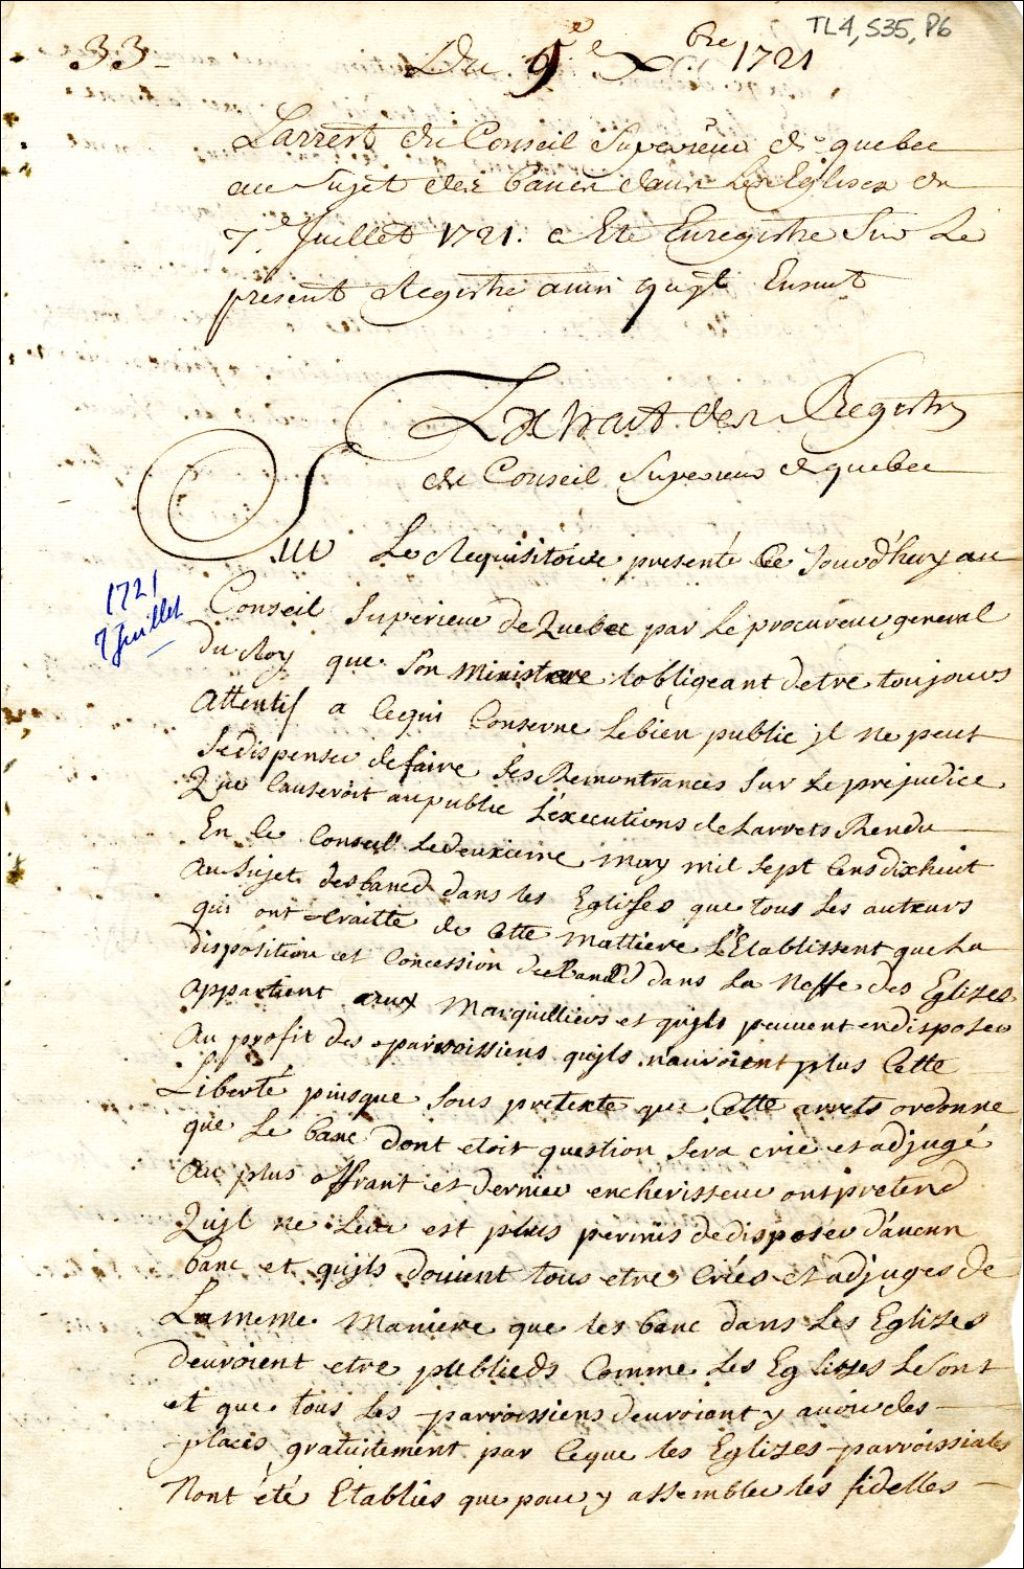 TL4, S35, P6
33
Du 9e Xbre 1721
Larrest du Conseil Superieur de quebec
au Sujet des bancs dans Les Eglises du
7e Juillet 1721. a Ete Enregistre Sur Le
present Registre ainsi quyl Ensuit
Extrait des Registres
du Conseil Superieur de quebec
Sur Le Requisitoire presenté Ce Jourd'huy au
1721
7 Juillet
Conseil Superieur de Quebec par Le procureur general
Du Roy que Son Ministere lobligeant detre toujours
Attentif a Cequi Conserne Lebien public jl ne peut
Sedispenser defaire Ses Remontrances Sur Le prejudice
Que Causeroit aupublic L'executions de Larrets Rendu
En Ce Conseil Ledeuxieme may mil Sept Cens dixhuit
Au Sujet des bancs dans les Eglisses que tous Les auteurs
qui ont traitté de Cette mattiere L'Etablissent que La
disposition et Concession des dans La Neffe des Eglises
appartient aux Marguilliers et qujls peuvent endisposer
Au profit des parroissiens qujls nauroient plus Cette
Liberté puisque Sous pretexte que Cette arrets ordonne
que Le banc dont etoit question Sera crié et adjugé
Au plus offrant et dernier encherisseur ont pretend
Qujl ne Leur est plus permis dedisposer d'aucun
banc et qujls doivent tous etre Criés et adjuges de
Lameme Maniere que les banc dans Les Eglizes
devroient etre publieds Comme Les Eglizes Le Sont
et que tous Les parroissiens devroient y avoir des
places gratuitement par Ceque les Eglizes parroissiales
Nont été Etablies que pour y assembler les fidelles